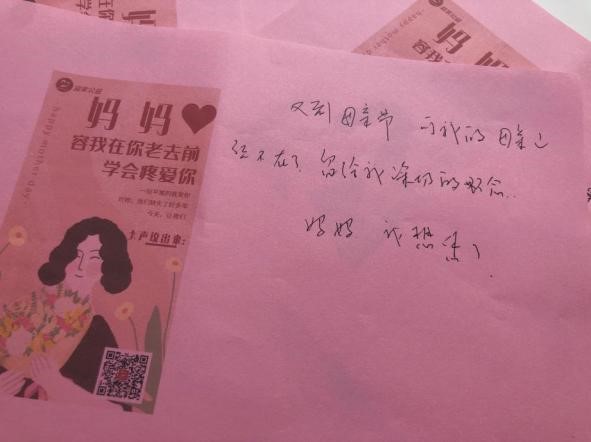 妈 妈
容我在你老去前
学会疼爱你
happy mother day.
大声说出来:
又到母亲节 可我的母亲已
经不在了 留给我深切的思念..
妈妈 我想您了